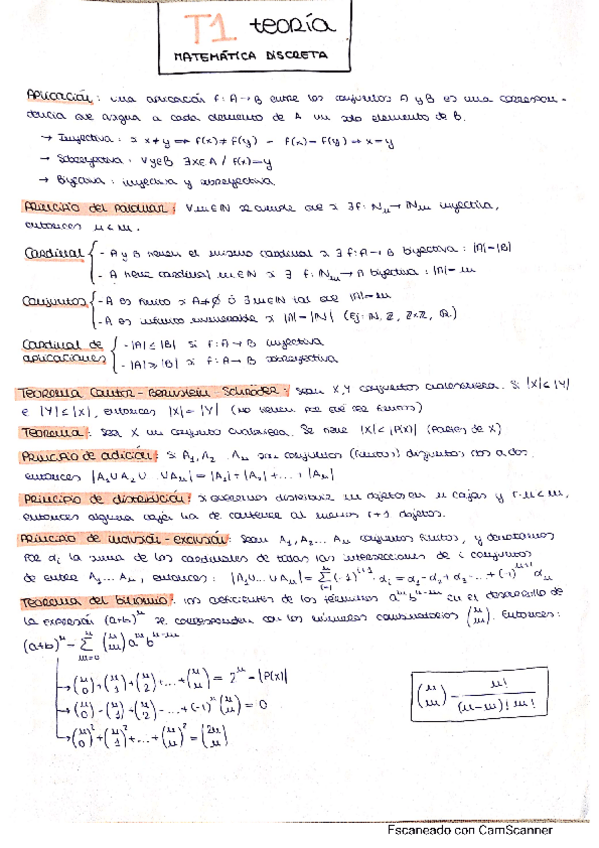 T1. teoría
MATEMÁTICA DISCRETA
Aplicación: una aplicación f: A→B entre los conjuntos A y B es una correspon-
dencia que asigna a cada elemento de A un solo elemento de B.
→ Inyectiva: si x≠y ⇒ f(x)≠f(y) - f(x)=f(y) ⇒ x=y
→ Sobreyectiva: ∀y∈B ∃x∈A / f(x)=y
→ Biyectiva: inyectiva y sobreyectiva.
Principio del Palomar: ∀m∈ℕ se cumple que si ∃ f: ℕn → ℕm inyectiva,
entonces n≤m.
Cardinal { - A y B tienen el mismo cardinal si ∃ f: A→B biyectiva: |A|=|B|
- A tiene cardinal m∈ℕ si ∃ f: ℕm → A biyectiva: |A|=m
Conjuntos { - A es finito si A=∅ ó ∃m∈ℕ tal que |A|=m
- A es infinito numerable si |A|=|ℕ| (Ej: ℕ, ℤ, ℤxℤ, ℚ)
Cardinal de aplicaciones { - |A|≤|B| si f: A→B inyectiva
- |A|≥|B| si f: A→B sobreyectiva
Teorema Cantor-Bernstein-Schröder: sean X,Y conjuntos cualesquiera. Si |X|≤|Y|
e |Y|≤|X|, entonces |X|=|Y| (no tienen por qué ser finitos)
Teorema: sea X un conjunto cualquiera. Se tiene |X|<|P(X)| (Partes de X)
Principio de adición: si A₁,A₂...Aₙ son conjuntos (finitos) disjuntos dos a dos,
entonces |A₁∪A₂∪...∪Aₙ|=|A₁|+|A₂|+...+|Aₙ|
Principio de distribución: si queremos distribuir m objetos en n cajas y r·n<m,
entonces alguna caja ha de contener al menos r+1 objetos.
Principio de inclusión-exclusión: sean A₁,A₂...Aₙ conjuntos finitos, y denotamos
por αᵢ la suma de los cardinales de todas las intersecciones de i conjuntos
de entre A₁...Aₙ, entonces: |A₁∪...∪Aₙ|=∑(i=1)ⁿ(-1)ⁱ⁺¹·αᵢ=α₁-α₂+α₃-...+(-1)ⁿ⁺¹αₙ
Teorema del binomio: los coeficientes de los términos aᵐbⁿ⁻ᵐ en el desarrollo de
la expresión (a+b)ⁿ se corresponden con los números combinatorios (n m). Entonces:
(a+b)ⁿ=∑(m=0)ⁿ (n m) aᵐbⁿ⁻ᵐ
→ (n 0)+(n 1)+(n 2)+...+(n n)=2ⁿ=|P(X)|
→ (n 0)-(n 1)+(n 2)-...+(-1)ⁿ(n n)=0
→ (n 0)²+(n 1)²+...+(n n)²=(2n n)
(n m)=n!/(n-m)!m!
Escaneado con CamScanner